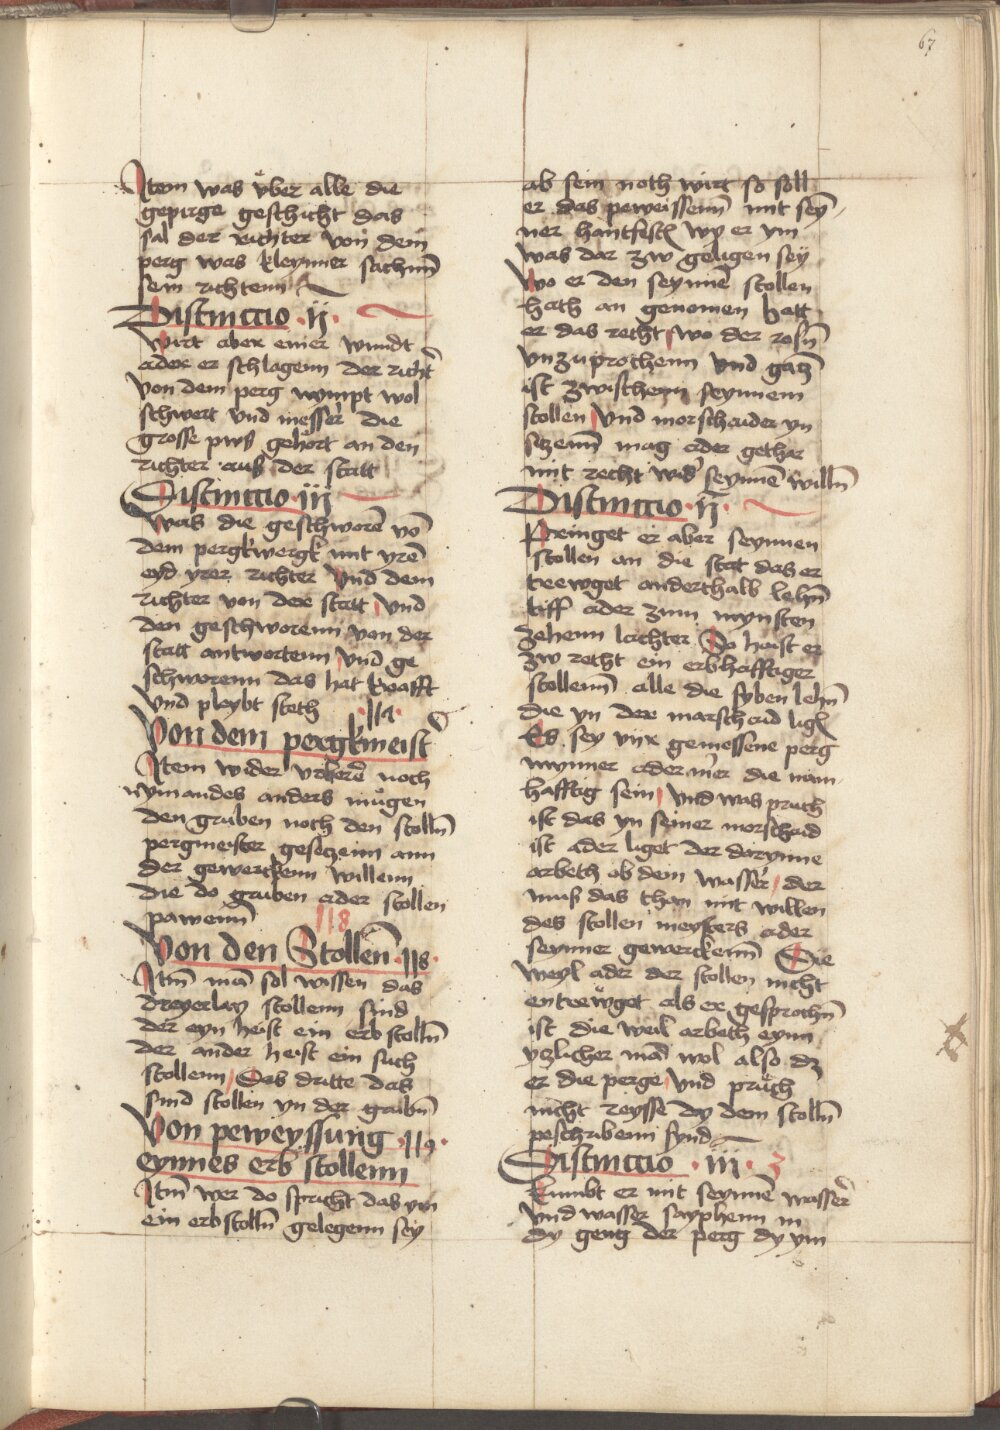 67
Item was vber alle die
gepirge geschicht das
sal der richter von dem
perg was kleynner sachnn
sein richtenn
Distinctio · ij ·
Wirt aber einer wundt
ader er schlagenn der richt
von dem perg nympt wol
schwert vnd messer die
grosse pus gehort an den
richter aus der statt
Distinctio · iij
Was die geschworē vō
dem pergkwergk mit yrē
eyd yrer richter vnd dem
richter von der statt vnd
den geschworenn von der
statt antwortenn vnd ge
schworenn das hat krafft
vnd pleybt steth
· 117 ·
Von dem pergkmeist
Item wider noch
nymandes anders mugen
den gruben noch den stolln̄
pergmeister gesetzenn ann
der gewerckenn willenn
die do gruben ader stollen
pawenn
118
Von den Stollen̄ · 118 ·
Itm̄ mā sol wissen das
dreyerlay stollenn sind
der eyn heist ein erbstolln̄
der ander heist ein such
stollenn Das dritte das
sind stollen yn der grubn̄
Von peweyssung · 119 ·
eynnes erb stollenn
Itm̄ wer do spricht das ym
ein erbstolln̄ gelegenn sey
ab sein noth wirt so soll
er das peweissenn mit sey
ner hantfest wy er ym
was dar zw geligen sey
Wo er den seynnē stollen
hath an genomen hatt
er das recht wo der rosn̄
vnzuprochenn vnd gantz
ist zwischenn seynnem
stollen vnd morscheider yn
sitzeann mag ader gethar
mit recht wid seynnē willn̄
Distinctio · ij ·
Pringet er aber seynnen
stollen an die stat das er
treewget anderthalb lehn̄
tiff ader zum mynsten
zehenn lachter So heist er
zw recht ein erbhafftiger
stollenn̄ alle die syben lehn̄
die yn der marscheid lig
Es sey vnr gemessene perg
mynner ader mer die nam
hafftig sein vnd was pruch
ist das yn seiner morscheid
ist ader liget der darynne
arbeth ob dem wasser der
mus das than mit willen
des stollen meysters ader
seynner gewerckenn̄ Die
weyl ader der stollen nicht
entreewget als er gesprochn̄
ist die weil arbeth eynn
ytzlicher mā wol also dz
er die perge vnd pruch
nicht reysse dy dem stolln̄
peschribenn synd
Distinctio · iij · 3
Kumbt er mit seynnē wasser
vnd wasser sayphenn in
dy geng der perg dy ym